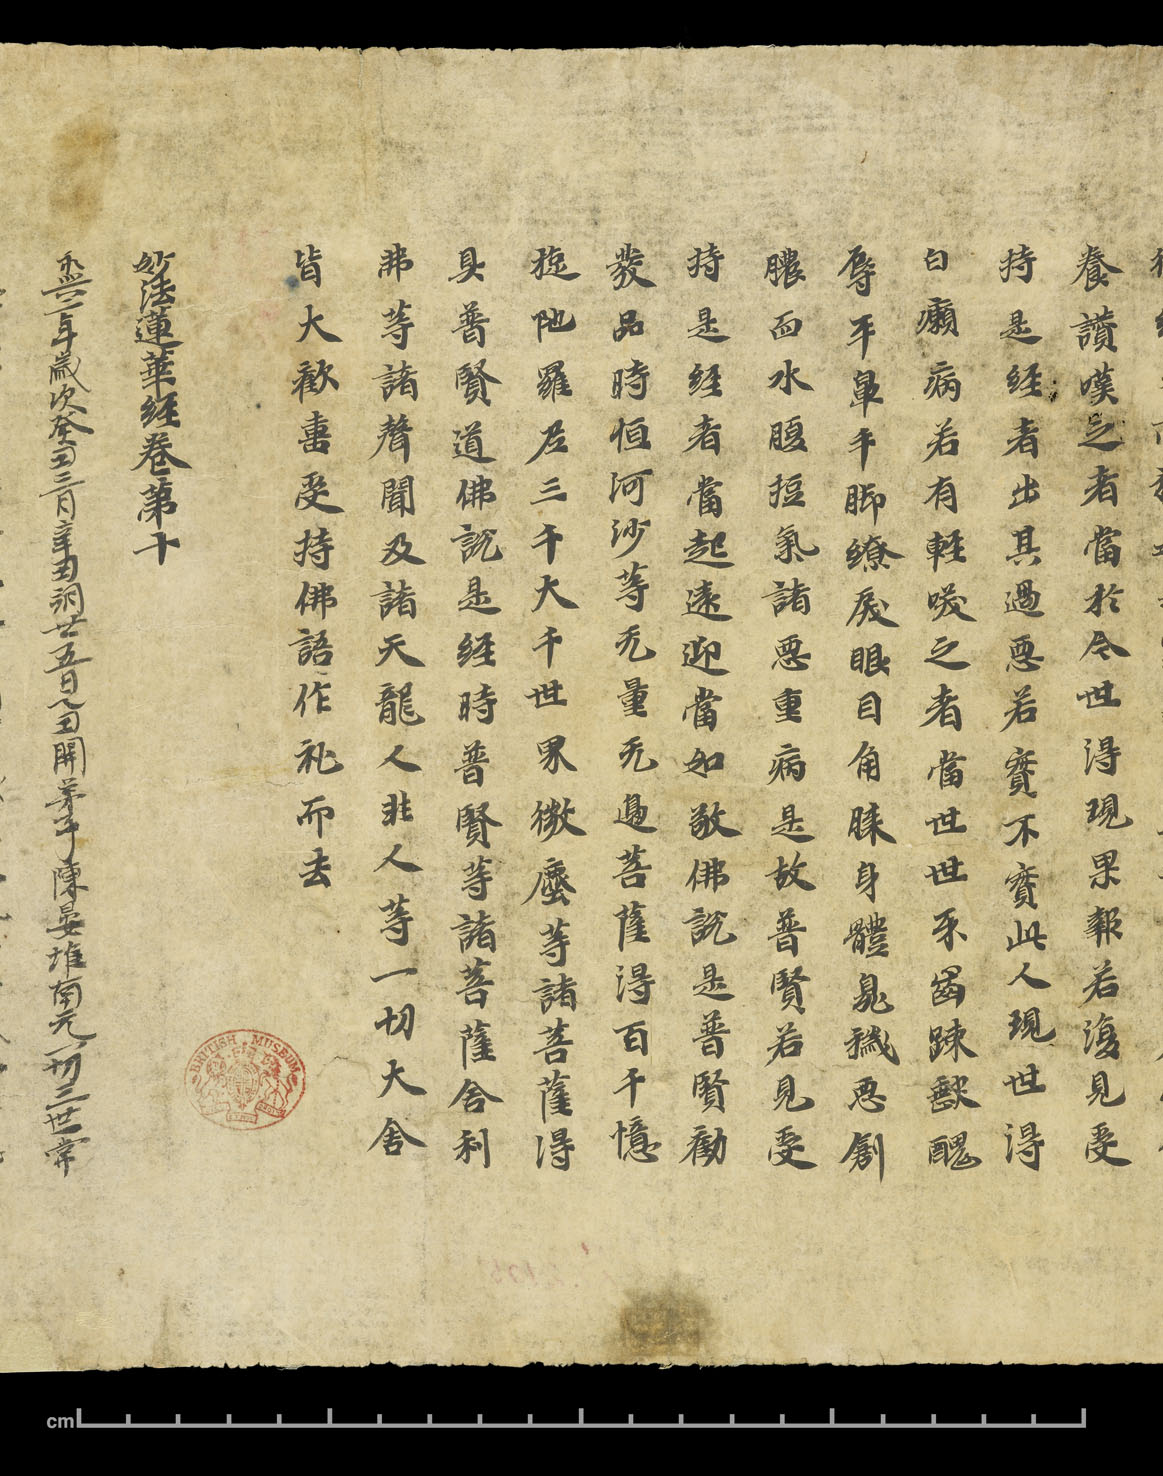 養讃嘆之者當於今世得現果報若復見受
持是經者出其過惡若實不實此人現世得
白癩病若有輕咲之者當世世牙齒踈缺醜
脣平鼻手脚繚戾眼目角睞身體臰穢惡創
膿血水腹短氣諸惡重病是故普賢若見受
持是經者當起遠迎當如敬佛說是普賢勸
發品時恒河沙等无量无邊菩薩得百千憶
旋陁羅尼三千大千世界微塵等諸菩薩得
具普賢道佛說是經時普賢等諸菩薩舍利
弗等諸聲聞及諸天龍人非人等一切大舍
皆大歡憙受持佛語作礼而去
妙法蓮華經卷第十
年歲次癸丑三月辛丑朔廿五日乙丑開弟子陳晏堆南无一切三世常
BRITISH MUSEUM
cm